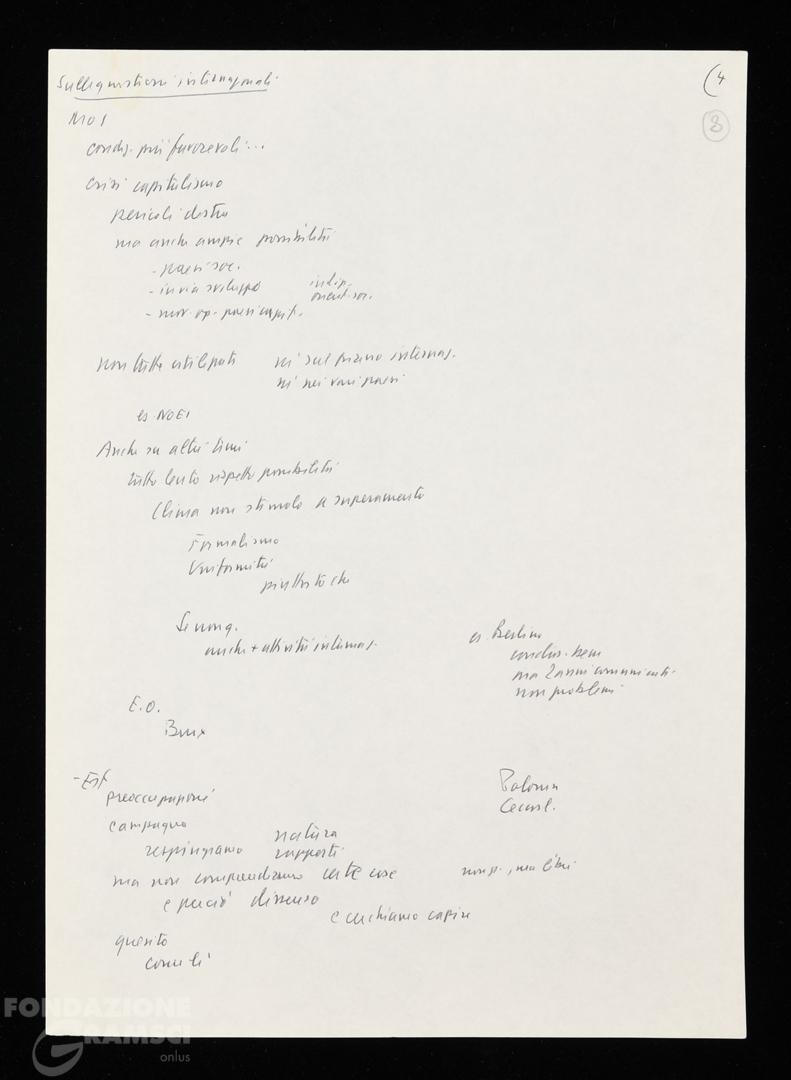 Sulle questioni internazionali
(4
8
MOI
condiz. più favorevoli...
crisi capitalismo
pericoli destra
ma anche ampie possibilità
- paesi soc.
- in via sviluppo indip.
orient. soc.
- mov. op. paesi capit.
non tutte utilizzate né sul piano internaz.
né nei vari paesi
es. NOEI
Anche su altri temi
tutto lento rispetto possibilità
Clima non stimola a superamento
Formalismo
Uniformità
piuttosto che
anche + attività internaz.
es. Berlino
conclus. bene
ma 2 anni comunicati
non problemi
E.O.
Brux
- Est
preoccupazioni
Polonia
Cecosl.
campagna
respingiamo natura
rapporti
ma non comprendiamo certe cose
e perciò dissenso
e cerchiamo capire
questo